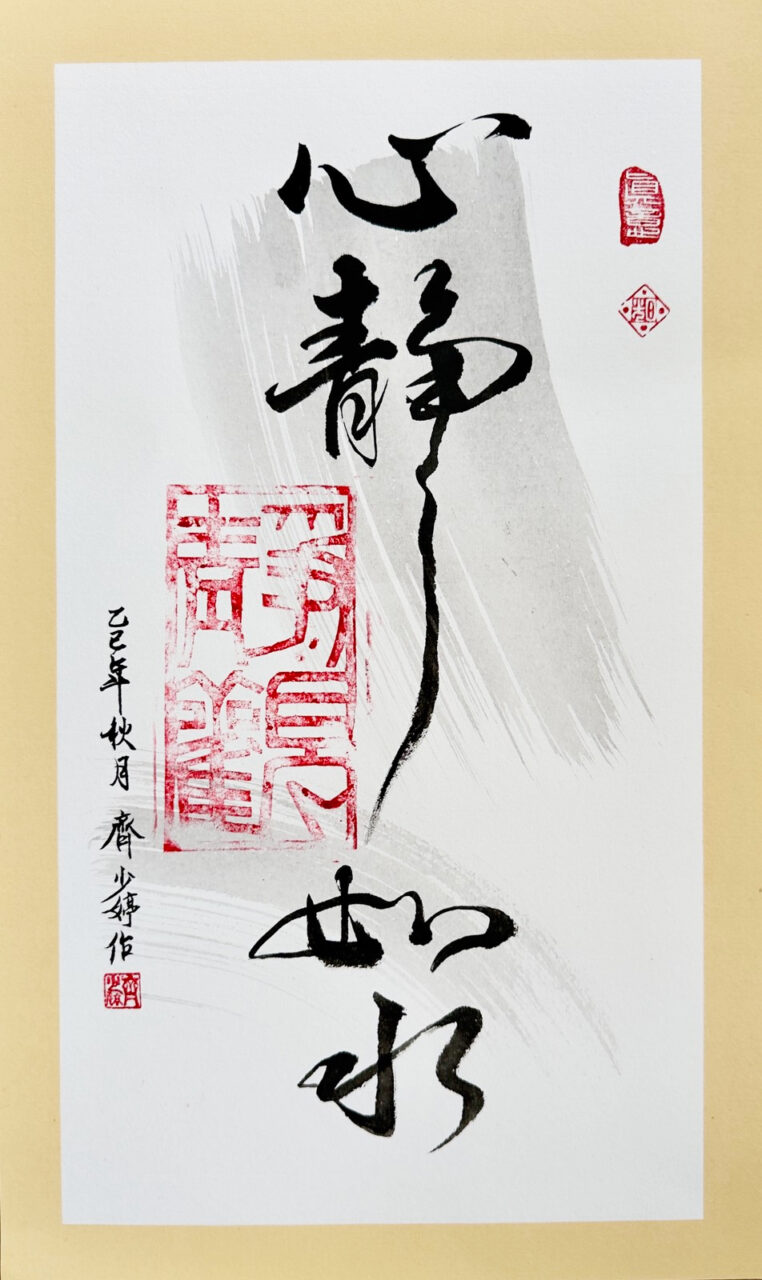 心靜如水
乙巳年秋月 齊少婷作